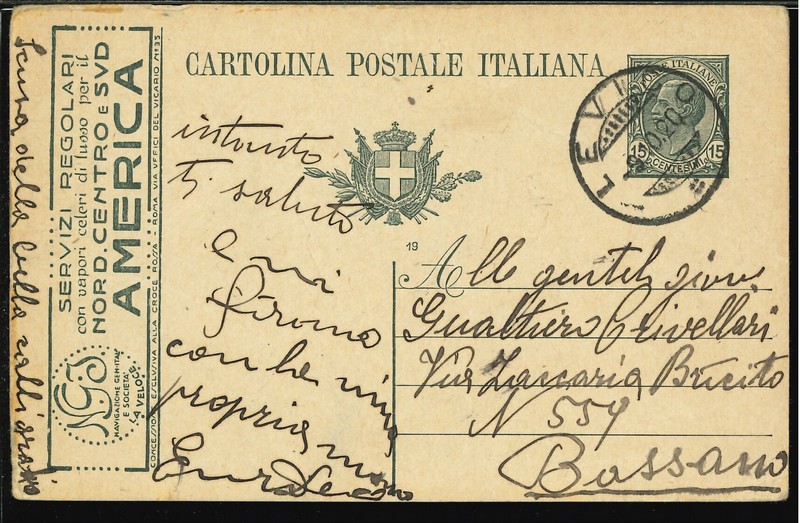 Scusa della bella calligrafia
SERVIZI REGOLARI
con vapori celeri di lusso per il
NORD.CENTRO E SVD
AMERICA
NGI
NAVIGAZIONE GEN. ITAL.
E SOCIETÀ
LA VELOCE
CONCESSION. ESCLUSIVA ALLA CROCE ROSSA - ROMA VIA UFFICI DEL VICARIO N. 35
CARTOLINA POSTALE ITALIANA
POSTE ITALIANE
15 15
CENTESIMI
LEVI
20
intanto
ti saluto
e mi
firmo
con la mia
propria mano
19
All gentil giov.
Gualtiero Crivellari
Via Zaccaria Bricito
N 554
Bassano